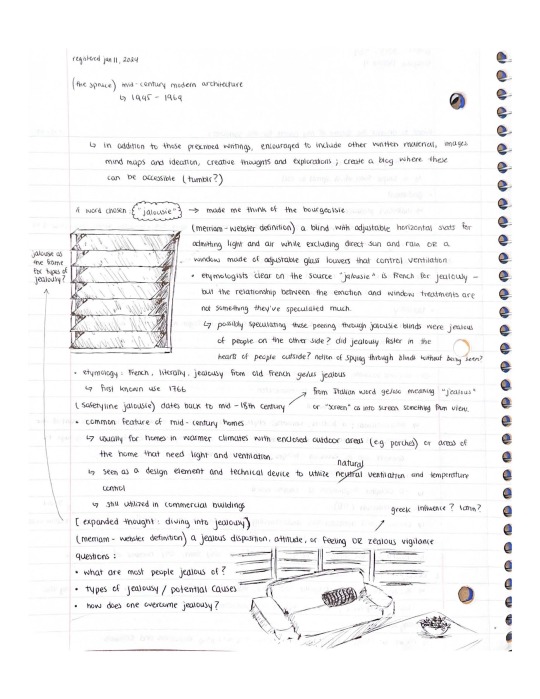 registered jan 11, 2024
(the spruce) mid-century modern architecture
↳ 1945 - 1969
↳ in addition to those prescribed writings, encouraged to include other written material, images
mind maps and ideation, creative thoughts and explorations; create a blog where these
can be accessible (tumblr?)
* word chosen "jalousie" → made me think of the bourgeoisie
(merriam-webster definition) a blind with adjustable horizontal slats for
admitting light and air while excluding direct sun and rain OR a
window made of adjustable glass louvers that control ventilation
• etymologists clear on the source "jalousie" is French for jealousy -
but the relationship between the emotion and window treatments are
not something they've speculated much.
↳ possibly speculating those peering through jalousie blinds were jealous
of people on the other side? did jealousy fester in the
hearts of people outside? notion of spying through blinds without being seen?
jalousie as
the frame
for types of
jealousy?
• etymology: French, literally, jealousy from old French gelus jealous
↳ first known use 1766
from Italian word geloso meaning "jealous"
(safetyline jalousie) dates back to mid-18th century
or "screen" as into screen something from view.
• common feature of mid-century homes
↳ usually for homes in warmer climates with enclosed outdoor areas (eg porches) or areas of
the home that need light and ventilation.
natural
↳ seen as a design element and technical device to utilize neutral ventilation and temperature
control
↳ still utilized in commercial buildings
greek influence? latin?
[expanded thought: diving into jealousy)
(merriam-webster definition) a jealous disposition, attitude, or feeling OR zealous vigilance
questions:
• what are most people jealous of?
• types of jealousy / potential causes
• how does one overcome jealousy?